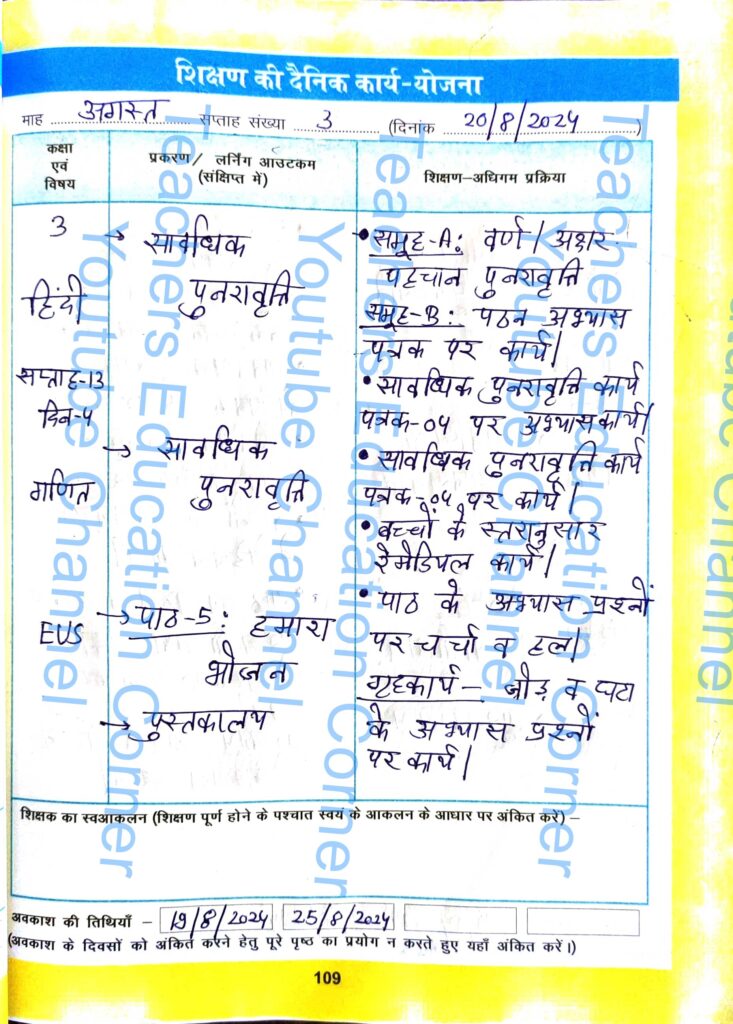 शिक्षण की दैनिक कार्य-योजना
माह अगस्त सप्ताह संख्या 3 (दिनांक 20/8/2024)
कक्षा
एवं
विषय
प्रकरण/ लर्निंग आउटकम
(संक्षिप्त में)
शिक्षण-अधिगम प्रक्रिया
3
हिंदी
सप्ताह-13
दिन-4
→ सावधिक
पुनरावृत्ति
• समूह-A: वर्ण/अक्षर
पहचान पुनरावृत्ति
समूह-B: पठन अभ्यास
पत्रक पर कार्य।
• सावधिक पुनरावृत्ति कार्य
पत्रक-04 पर अभ्यास कार्य।
गणित
→ सावधिक
पुनरावृत्ति
• सावधिक पुनरावृत्ति कार्य
पत्रक-04 पर कार्य।
• बच्चों के स्तरानुसार
रेमेडियल कार्य।
EVS
→ पाठ-5: हमारा
भोजन
→ पुस्तकालय
• पाठ के अभ्यास प्रश्नों
पर चर्चा व हल।
गृहकार्य - जोड़ व घटा
के अभ्यास प्रश्नों
पर कार्य।
शिक्षक का स्वआकलन (शिक्षण पूर्ण होने के पश्चात स्वयं के आकलन के आधार पर अंकित करें) –
अवकाश की तिथियाँ – 19/8/2024 25/8/2024
(अवकाश के दिवसों को अंकित करने हेतु पूरे पृष्ठ का प्रयोग न करते हुए यहाँ अंकित करें।)
109
Teachers Education Corner
Youtube Channel
Teachers Education Corner
Youtube Channel
Teachers Education Corner
Youtube Channel